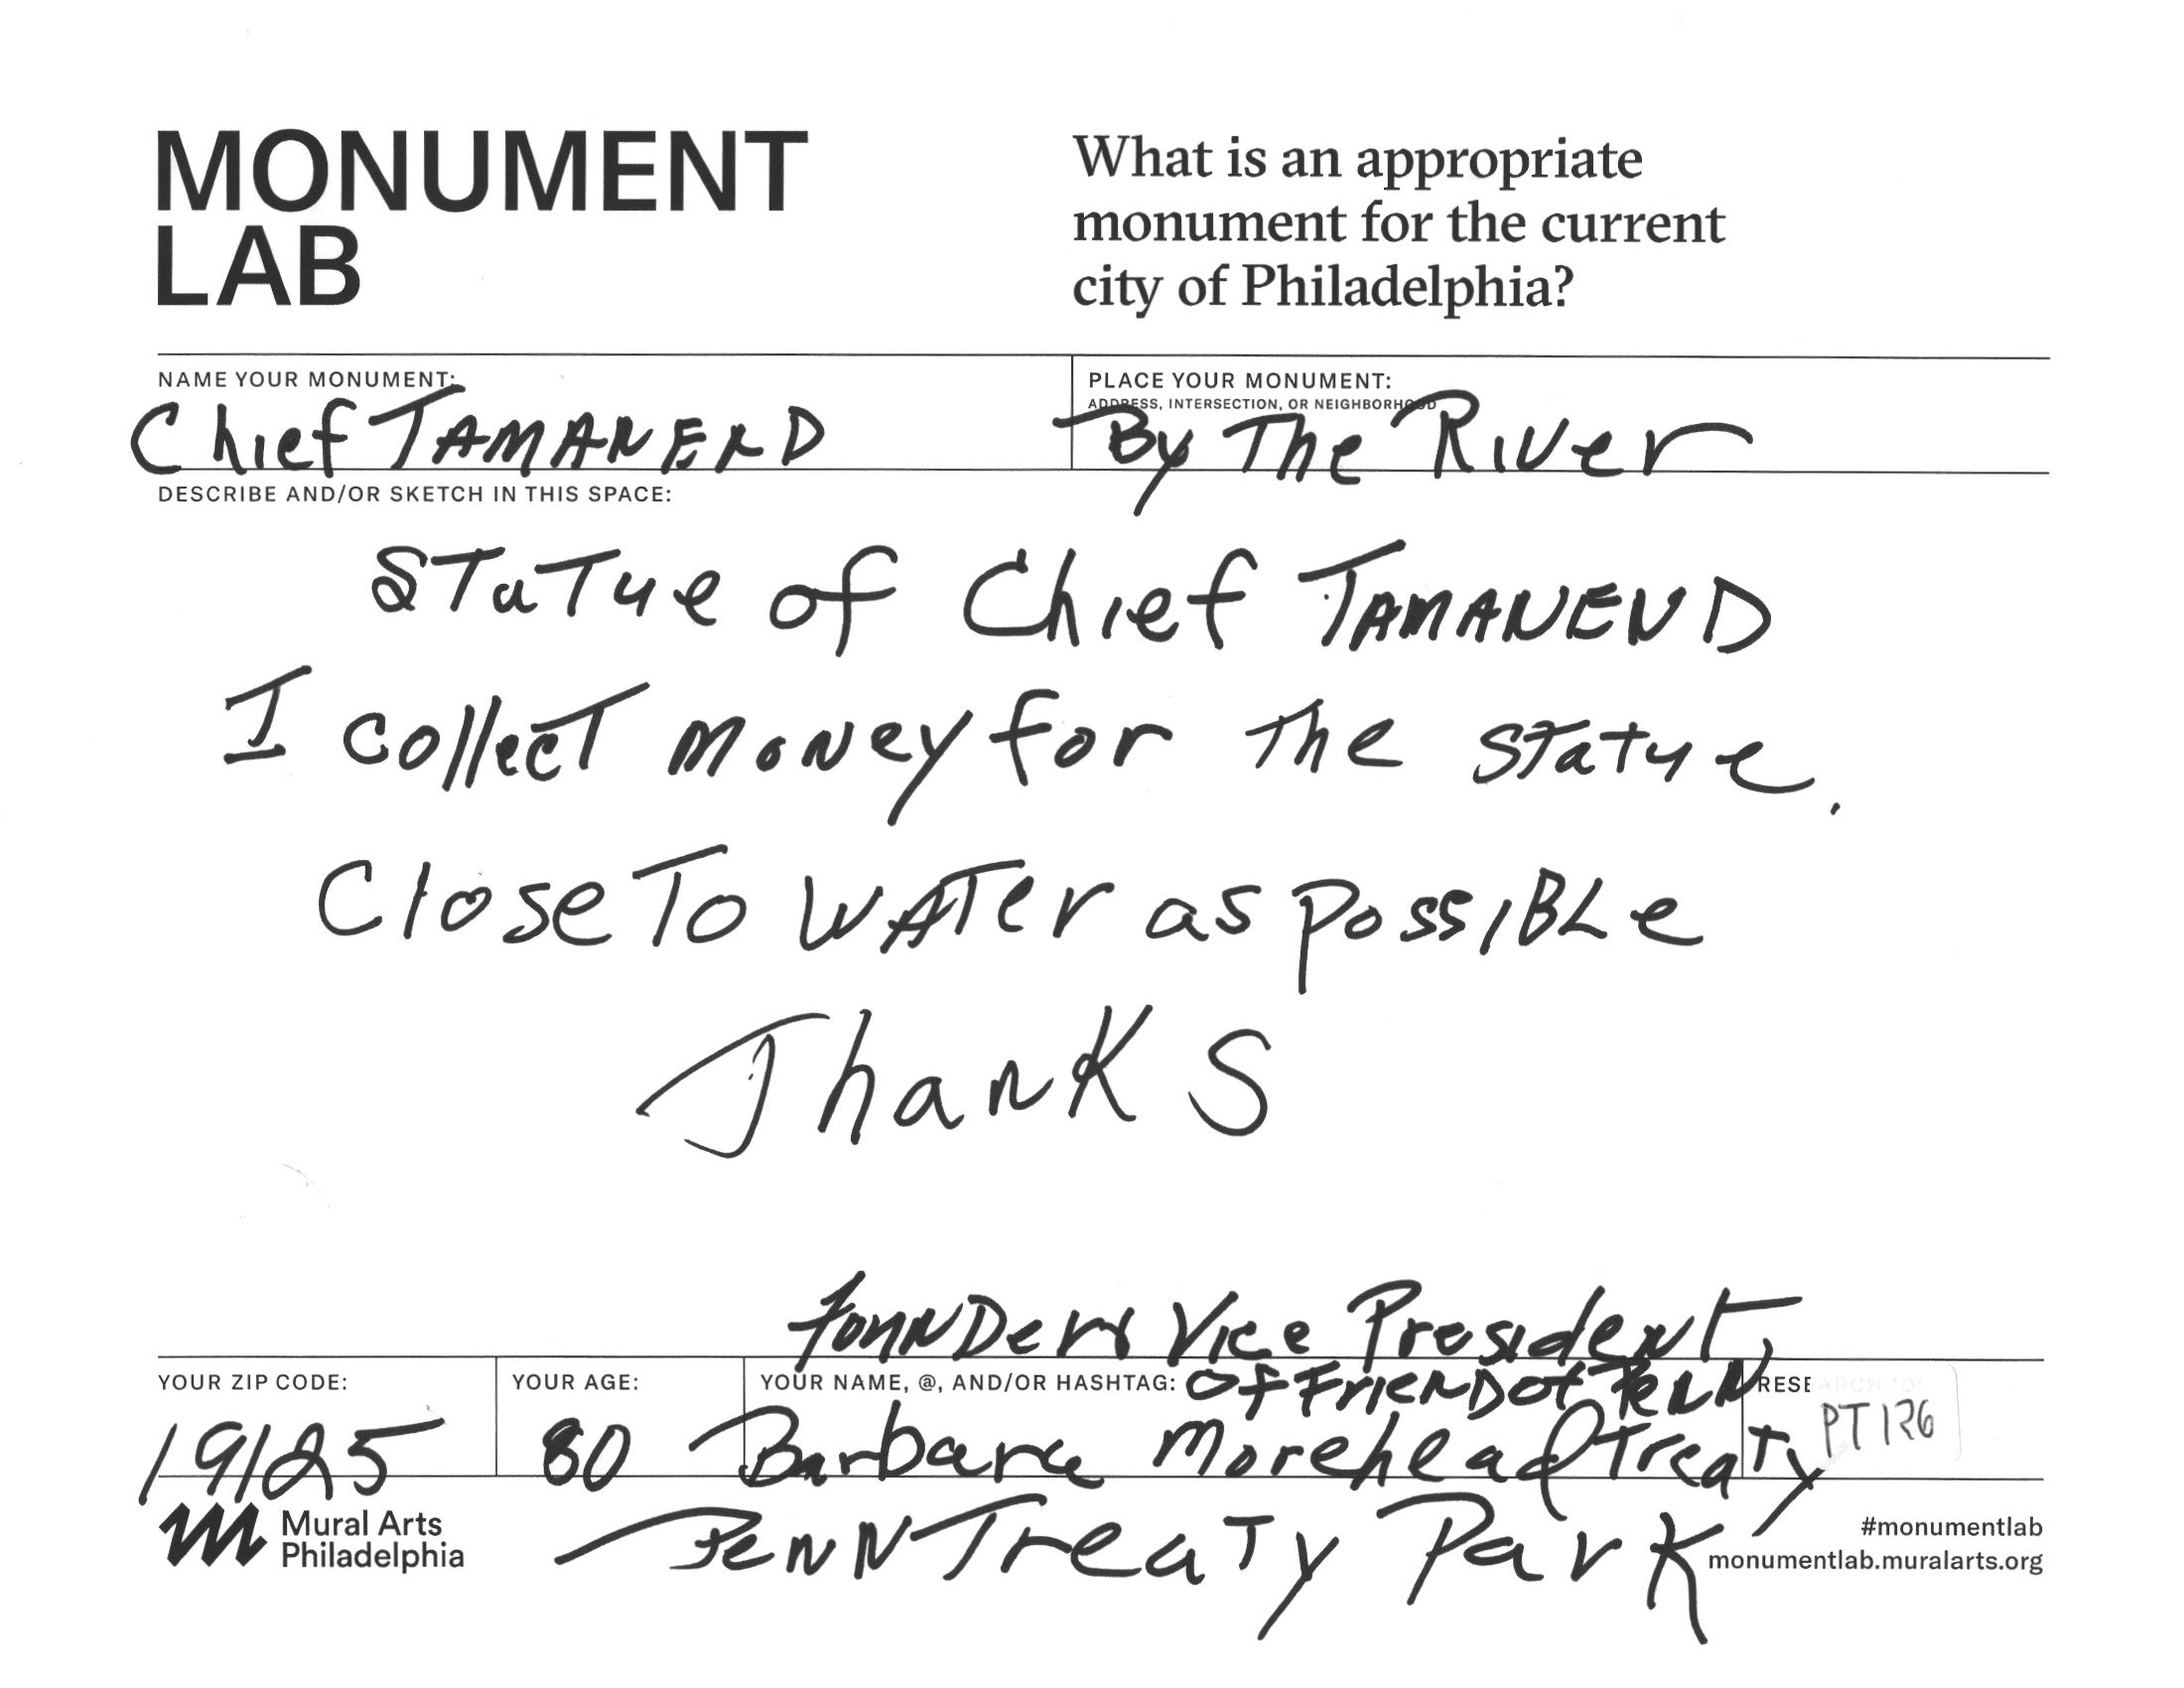 MONUMENT
LAB
What is an appropriate
monument for the current
city of Philadelphia?
NAME YOUR MONUMENT:
Chief TAMANEND
PLACE YOUR MONUMENT:
ADDRESS, INTERSECTION, OR NEIGHBORHOOD
By The River
DESCRIBE AND/OR SKETCH IN THIS SPACE:
STaTue of Chief TAMANEND
I collecT MoNey for The STatue.
Close To WATer as possiBLe
Thanks
founDer Vice President,
YOUR ZIP CODE:
19125
YOUR AGE:
80
YOUR NAME, @, AND/OR HASHTAG:
of FrienD of PeNN
Barbara Morehead Treaty
PennTreaTy Park
RESEARCH ID:
PT126
Mural Arts
Philadelphia
#monumentlab
monumentlab.muralarts.org